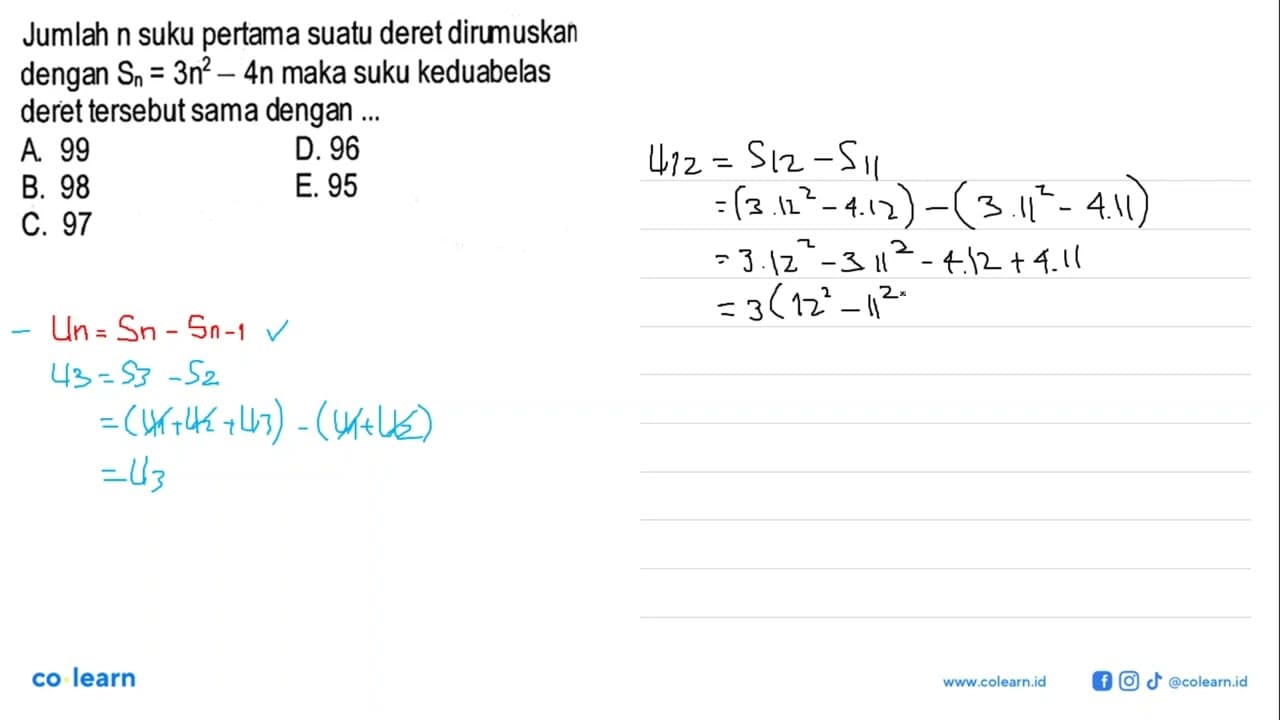 Jumlah n suku pertama suatu deret dirumuskan
dengan Sₙ = 3n² – 4n maka suku keduabelas
deret tersebut sama dengan ...
A. 99
D. 96
B. 98
E. 95
C. 97
– Un = Sn – Sn-1 ✓
U3 = S3 – S2
= (U1 + U2 + U3) – (U1 + U2)
= U3
U12 = S12 – S11
= (3.12² – 4.12) – (3.11² – 4.11)
= 3.12² – 3 11² – 4.12 + 4.11
= 3(12² – 11²
co learn
www.colearn.id
@colearn.id